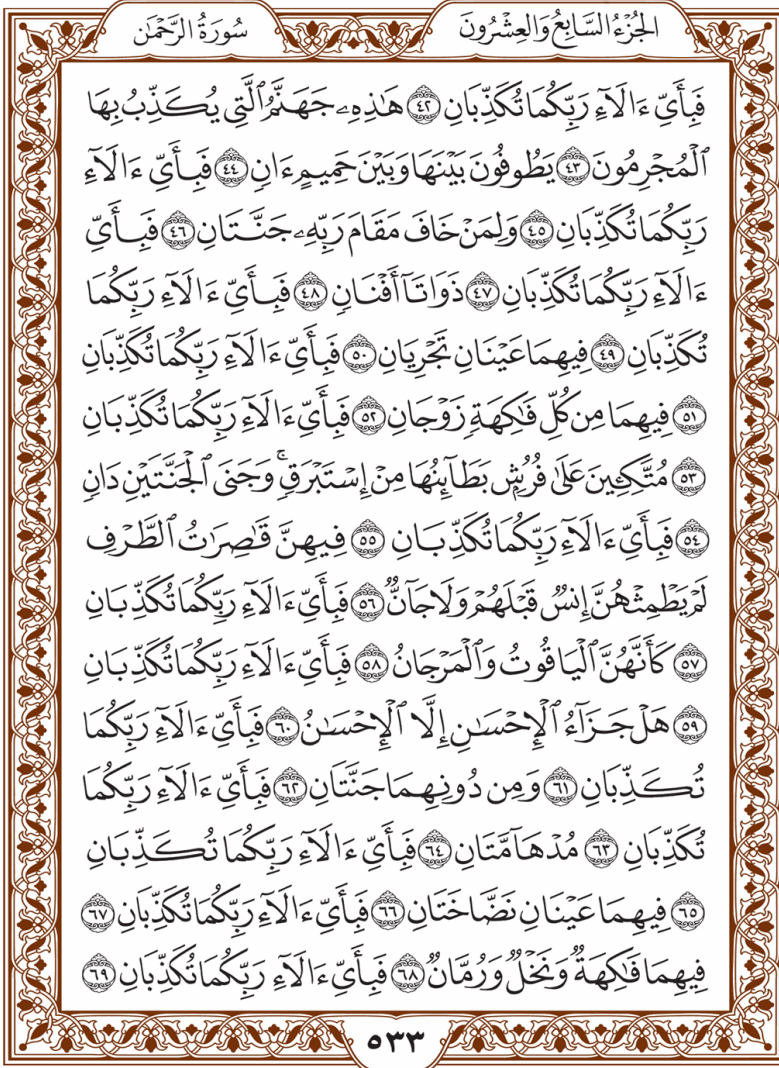 الجُزْءُ السَّابِعُ وَالعِشْرُونَ
سُورَةُ الرَّحْمَٰن
فَبِأَيِّ ءَالَآءِ رَبِّكُمَا تُكَذِّبَانِ ٤٢ هَٰذِهِۦ جَهَنَّمُ ٱلَّتِي يُكَذِّبُ بِهَا
ٱلْمُجْرِمُونَ ٤٣ يَطُوفُونَ بَيْنَهَا وَبَيْنَ حَمِيمٍ ءَانٖ ٤٤ فَبِأَيِّ ءَالَآءِ
رَبِّكُمَا تُكَذِّبَانِ ٤٥ وَلِمَنْ خَافَ مَقَامَ رَبِّهِۦ جَنَّتَانِ ٤٦ فَبِأَيِّ
ءَالَآءِ رَبِّكُمَا تُكَذِّبَانِ ٤٧ ذَوَاتَآ أَفْنَانٖ ٤٨ فَبِأَيِّ ءَالَآءِ رَبِّكُمَا
تُكَذِّبَانِ ٤٩ فِيهِمَا عَيْنَانِ تَجْرِيَانِ ٥٠ فَبِأَيِّ ءَالَآءِ رَبِّكُمَا تُكَذِّبَانِ
٥١ فِيهِمَا مِن كُلِّ فَٰكِهَةٖ زَوْجَانِ ٥٢ فَبِأَيِّ ءَالَآءِ رَبِّكُمَا تُكَذِّبَانِ
٥٣ مُتَّكِـِٔينَ عَلَىٰ فُرُشِۭ بَطَآئِنُهَا مِنْ إِسْتَبْرَقٖۚ وَجَنَى ٱلْجَنَّتَيْنِ دَانٖ
٥٤ فَبِأَيِّ ءَالَآءِ رَبِّكُمَا تُكَذِّبَانِ ٥٥ فِيهِنَّ قَٰصِرَٰتُ ٱلطَّرْفِ
لَمْ يَطْمِثْهُنَّ إِنسٞ قَبْلَهُمْ وَلَا جَآنّٞ ٥٦ فَبِأَيِّ ءَالَآءِ رَبِّكُمَا تُكَذِّبَانِ
٥٧ كَأَنَّهُنَّ ٱلْيَاقُوتُ وَٱلْمَرْجَانُ ٥٨ فَبِأَيِّ ءَالَآءِ رَبِّكُمَا تُكَذِّبَانِ
٥٩ هَلْ جَزَآءُ ٱلْإِحْسَٰنِ إِلَّا ٱلْإِحْسَٰنُ ٦٠ فَبِأَيِّ ءَالَآءِ رَبِّكُمَا
تُكَذِّبَانِ ٦١ وَمِن دُونِهِمَا جَنَّتَانِ ٦٢ فَبِأَيِّ ءَالَآءِ رَبِّكُمَا
تُكَذِّبَانِ ٦٣ مُدْهَآمَّتَانِ ٦٤ فَبِأَيِّ ءَالَآءِ رَبِّكُمَا تُكَذِّبَانِ
٦٥ فِيهِمَا عَيْنَانِ نَضَّاخَتَانِ ٦٦ فَبِأَيِّ ءَالَآءِ رَبِّكُمَا تُكَذِّبَانِ ٦٧
فِيهِمَا فَٰكِهَةٞ وَنَخْلٞ وَرُمَّانٞ ٦٨ فَبِأَيِّ ءَالَآءِ رَبِّكُمَا تُكَذِّبَانِ ٦٩
٥٣٣